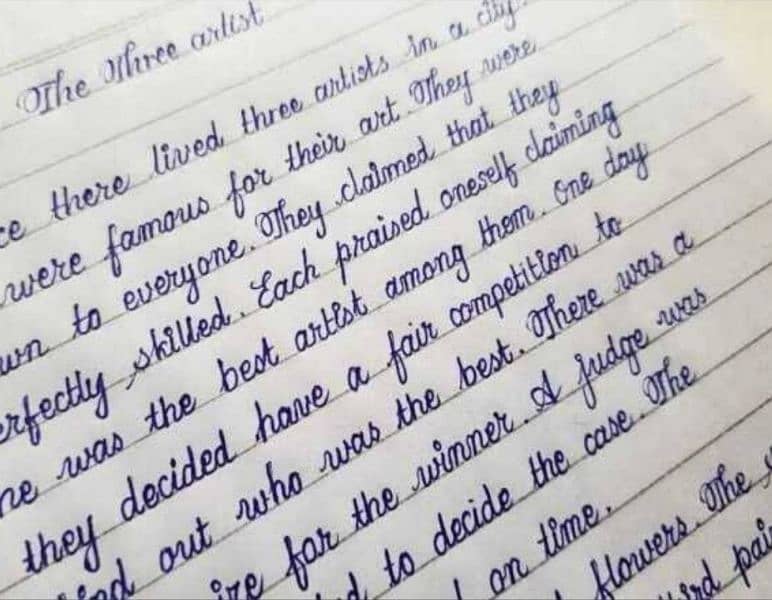 The Three artist
there lived three artists in a city
were famous for their art. They were
to everyone. They claimed that they
skilled. Each praised oneself claiming
was the best artist among them. One day
they decided have a fair competition to
out who was the best. There was a
for the winner. A judge was
to decide the case. The
on time.
flowers. The